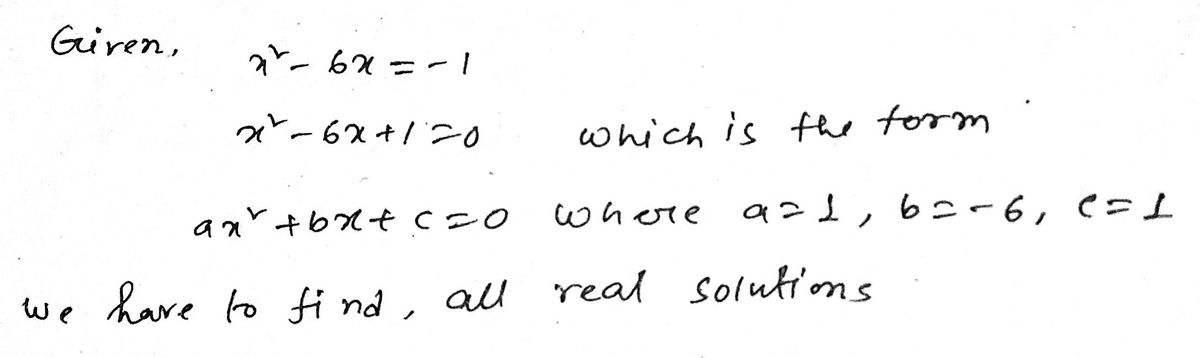 Given,
x² - 6x = -1
x² - 6x + 1 = 0 which is the form
ax² + bx + c = 0 where a = 1, b = -6, c = 1
we have to find, all real solutions